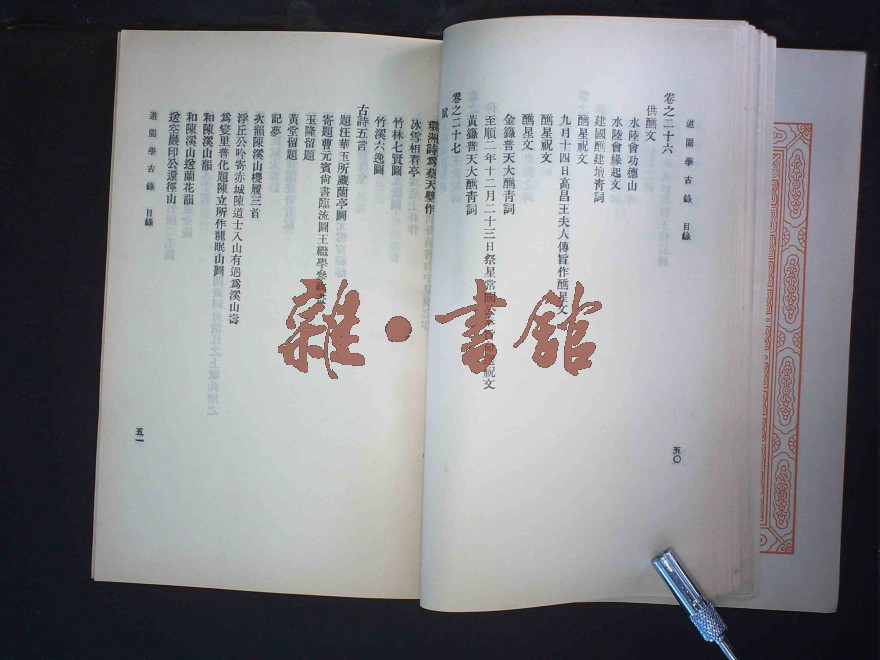 道園學古錄 目錄
卷之二十六
供醮文
水陸會功德山
水陸會緣起文
建國醮建壇青詞
醮星祝文
九月十四日高昌王夫人傳旨作醮星文
醮星文
醮星祝文
金籙普天大醮青詞
至順二年十二月二十三日祭星 祝文
黃籙普天大醮青詞
卷之二十七
賦
五〇
環洲詩為蔡天璧作
冰雪相看亭
竹林七賢圖
竹溪六逸圖
古詩五言
題汪華玉所藏蘭亭圖
寄題曹元賓尚書臨流圖王繼學參政
玉隆留題
黃堂留題
記夢
次韻陳溪山櫻履三首
浮丘公吟寄赤城陳道士入山有遇為溪山壽
為燮里普化題陳立所作龍眠山圖
和陳溪山韻
和陳溪山送蘭花韻
送空巖印公還徑山
道園學古錄 目錄
五一
雜·書館